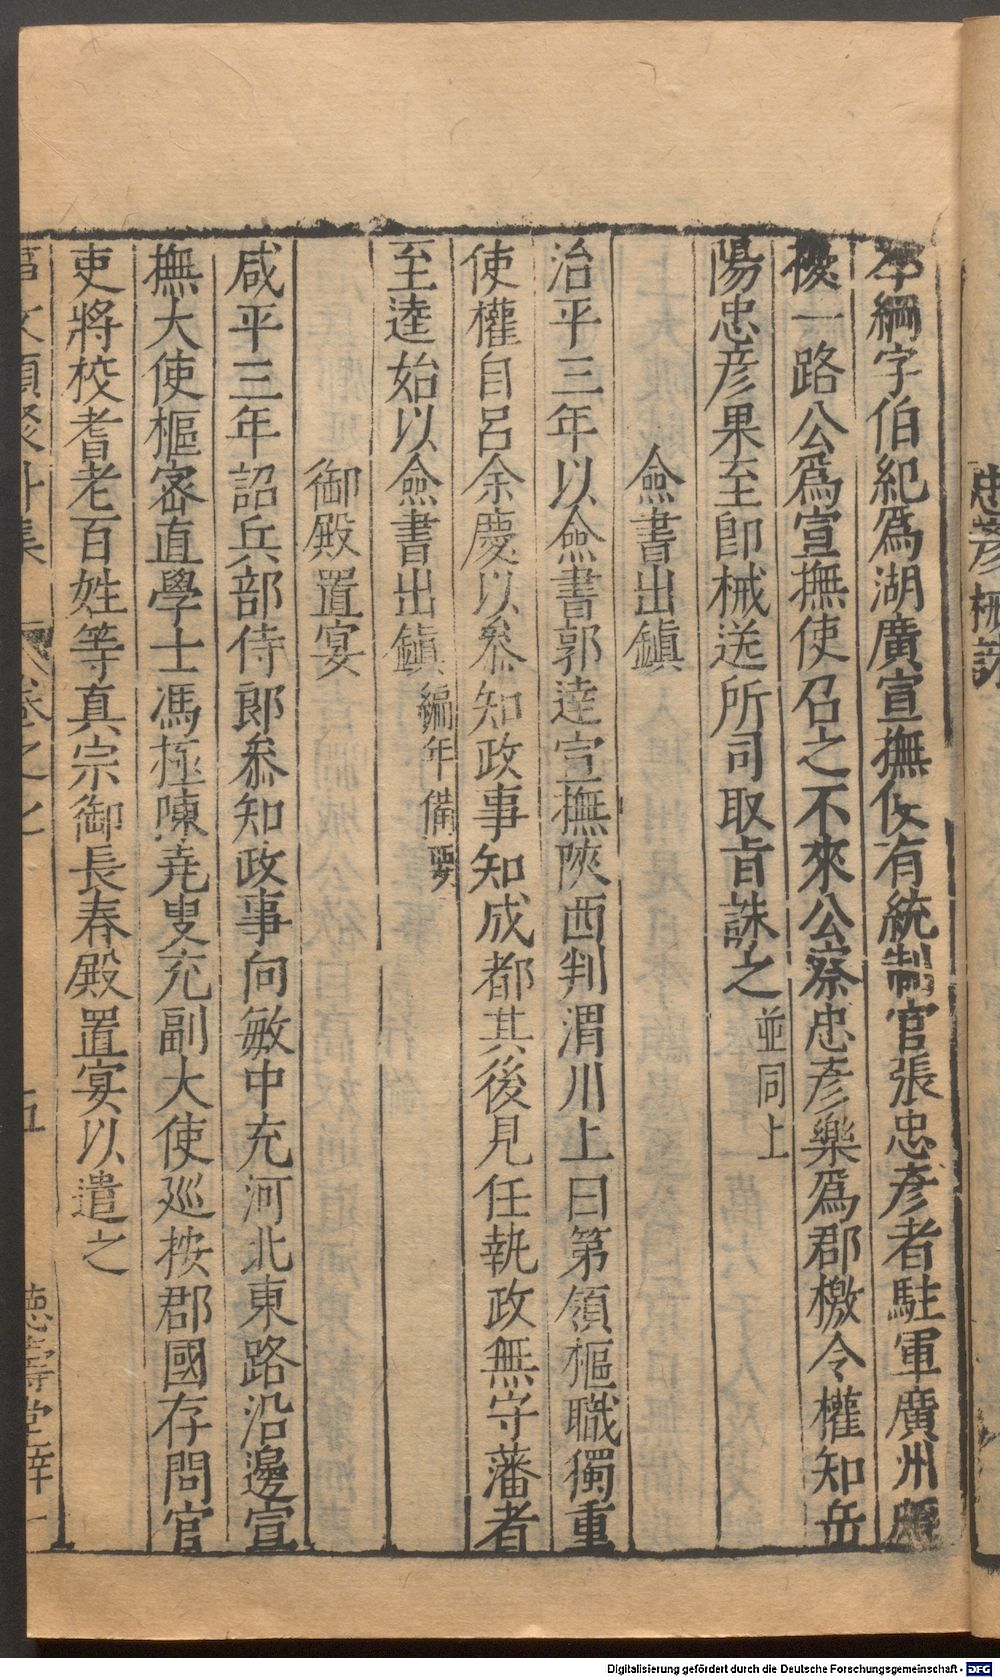 忠彥械誅
李綱字伯紀爲湖廣宣撫使有統制官張忠彥者駐軍廣州頗
擾一路公爲宣撫使召之不來公察忠彥樂爲郡檄令權知岳
陽忠彥果至即械送所司取旨誅之並同上
僉書出鎮
治平三年以僉書郭逵宣撫陝西判渭川上曰第領樞職獨重
使權自呂余慶以叅知政事知成都其後見任執政無守藩者
至逵始以僉書出鎮編年備要
御殿置宴
咸平三年詔兵部侍郎叅知政事向敏中充河北東路沿邊宣
撫大使樞密直學士馮極陳堯叟充副大使廵按郡國存問官
吏將校耆老百姓等真宗御長春殿置宴以遣之
事文類聚外集 卷之七 五 德壽堂梓
Digitalisierung gefördert durch die Deutsche Forschungsgemeinschaft - DFG